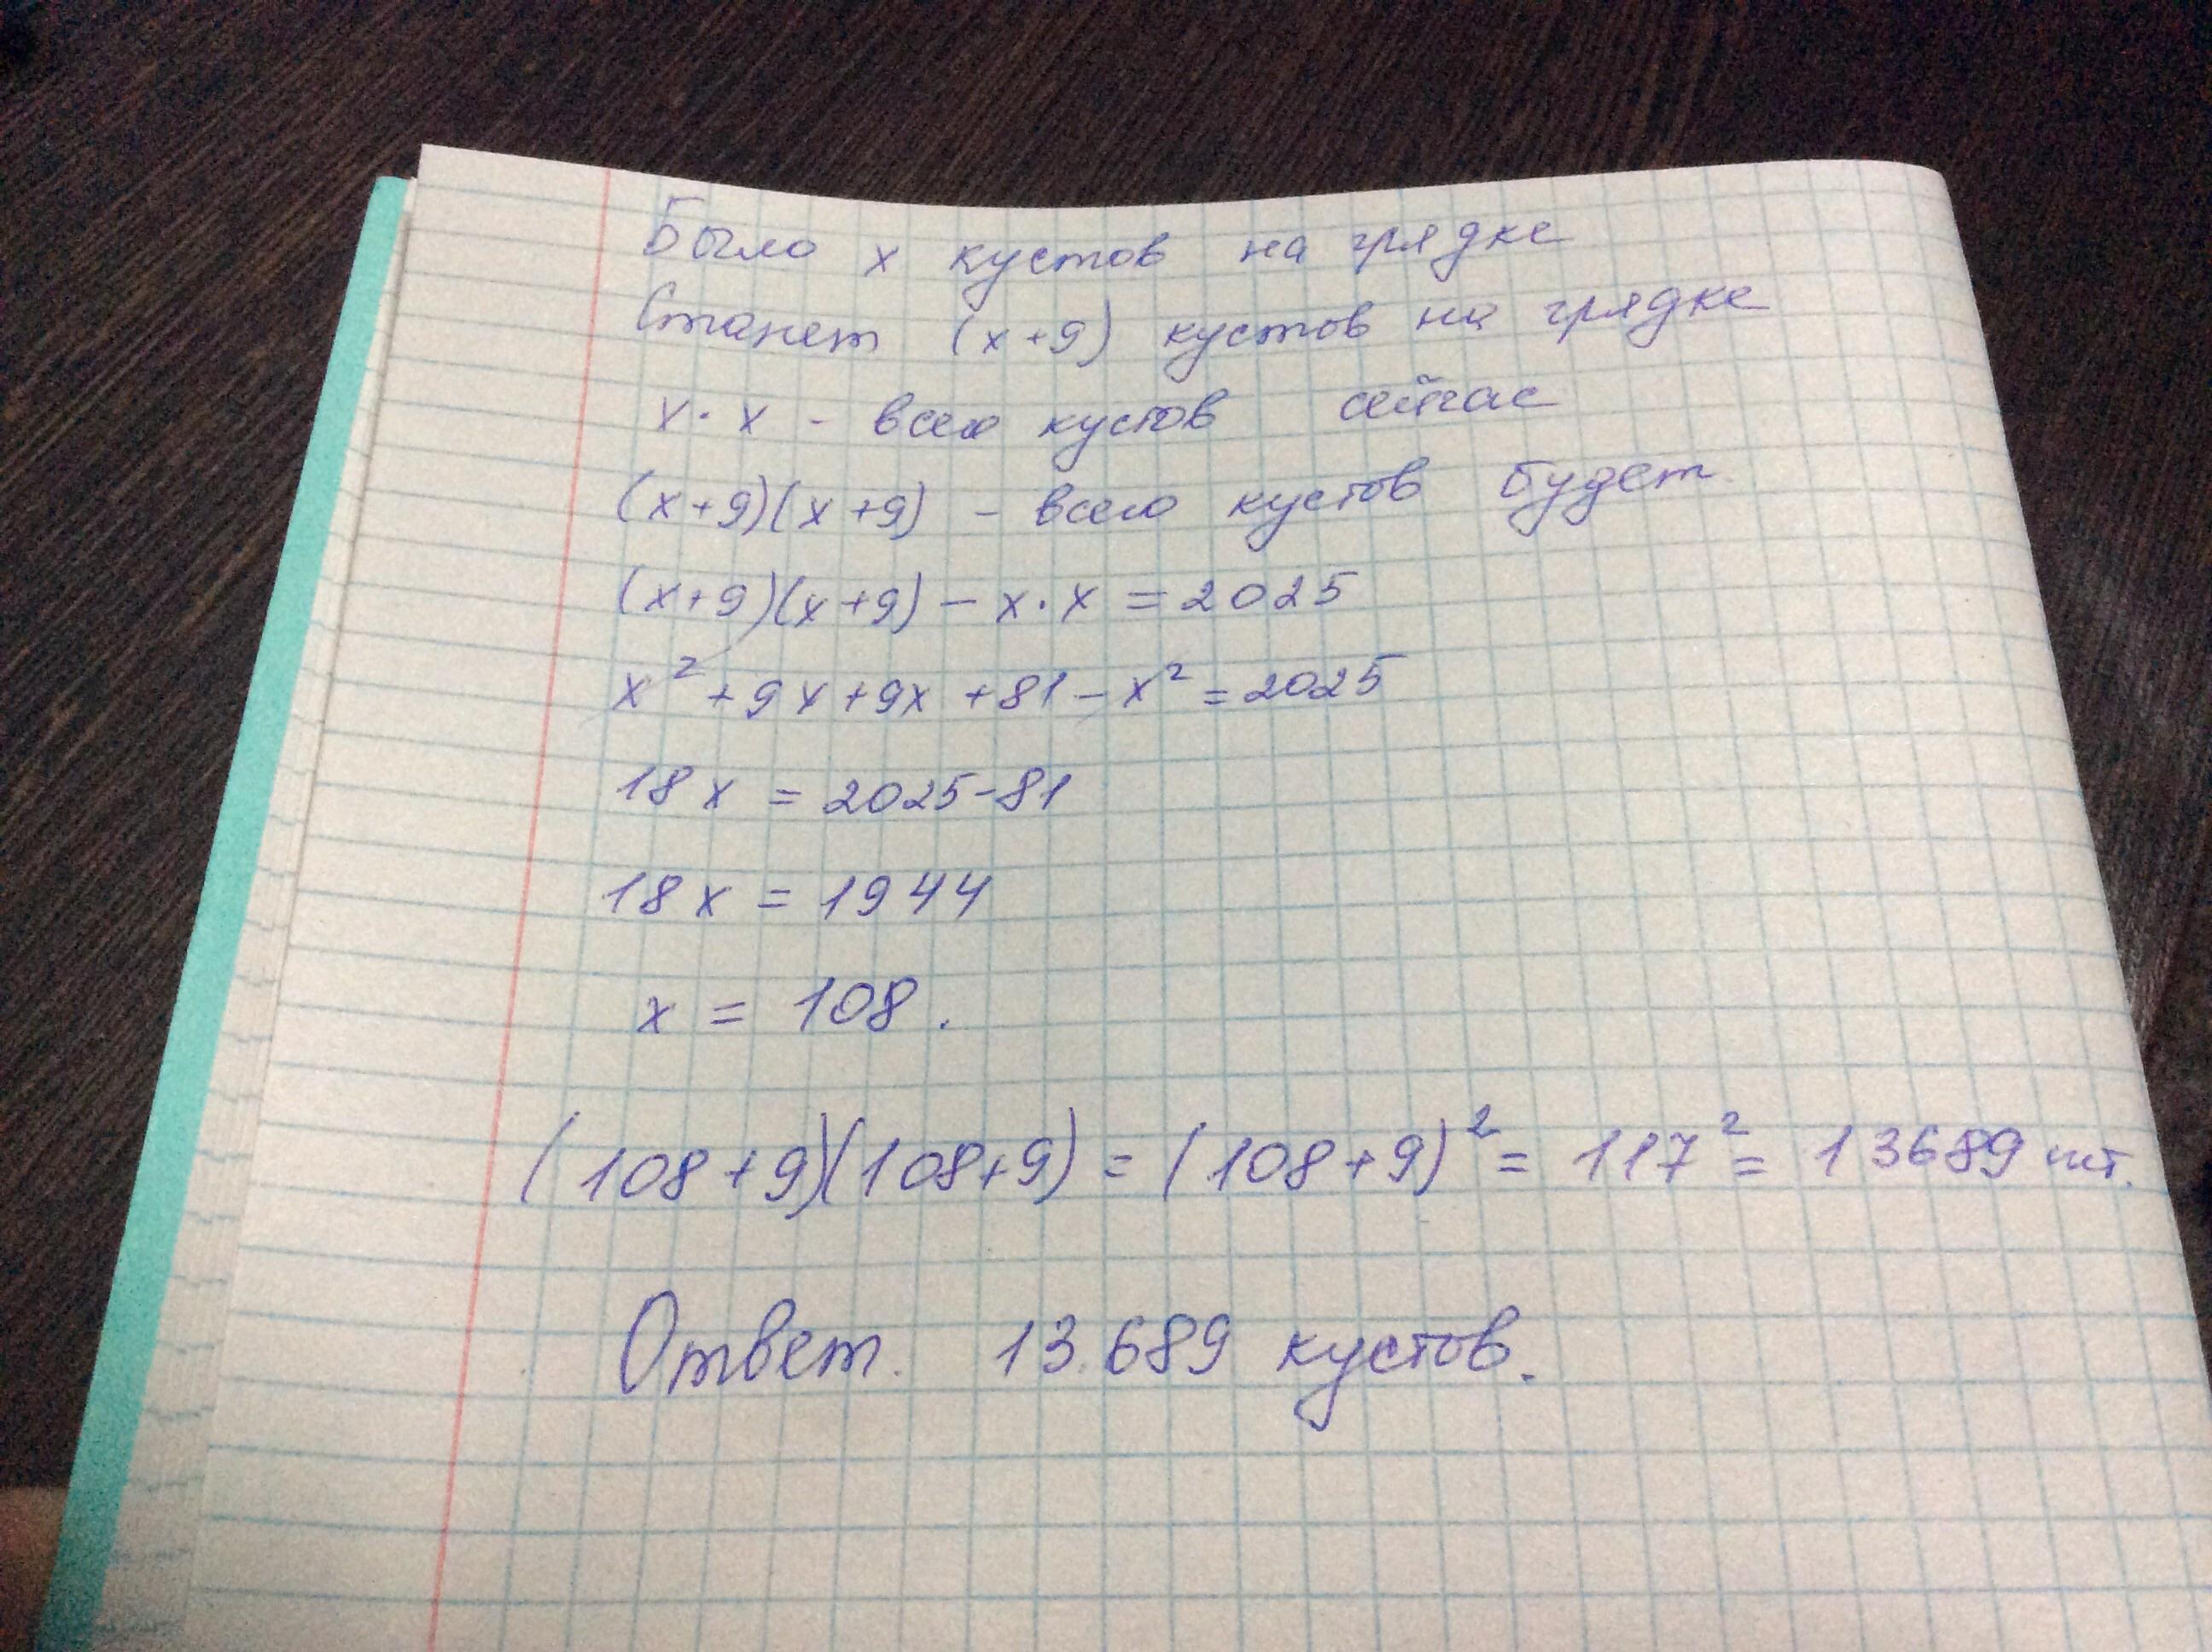 Было x кустов на грядке
Станет (x+9) кустов на грядке
x·x - всего кустов сейчас
(x+9)(x+9) - всего кустов будет.
(x+9)(x+9) - x·x = 2025
x² + 9x + 9x + 81 - x² = 2025
18x = 2025-81
18x = 1944
x = 108.
(108+9)(108+9) = (108+9)² = 117² = 13689 шт.
Ответ. 13.689 кустов.